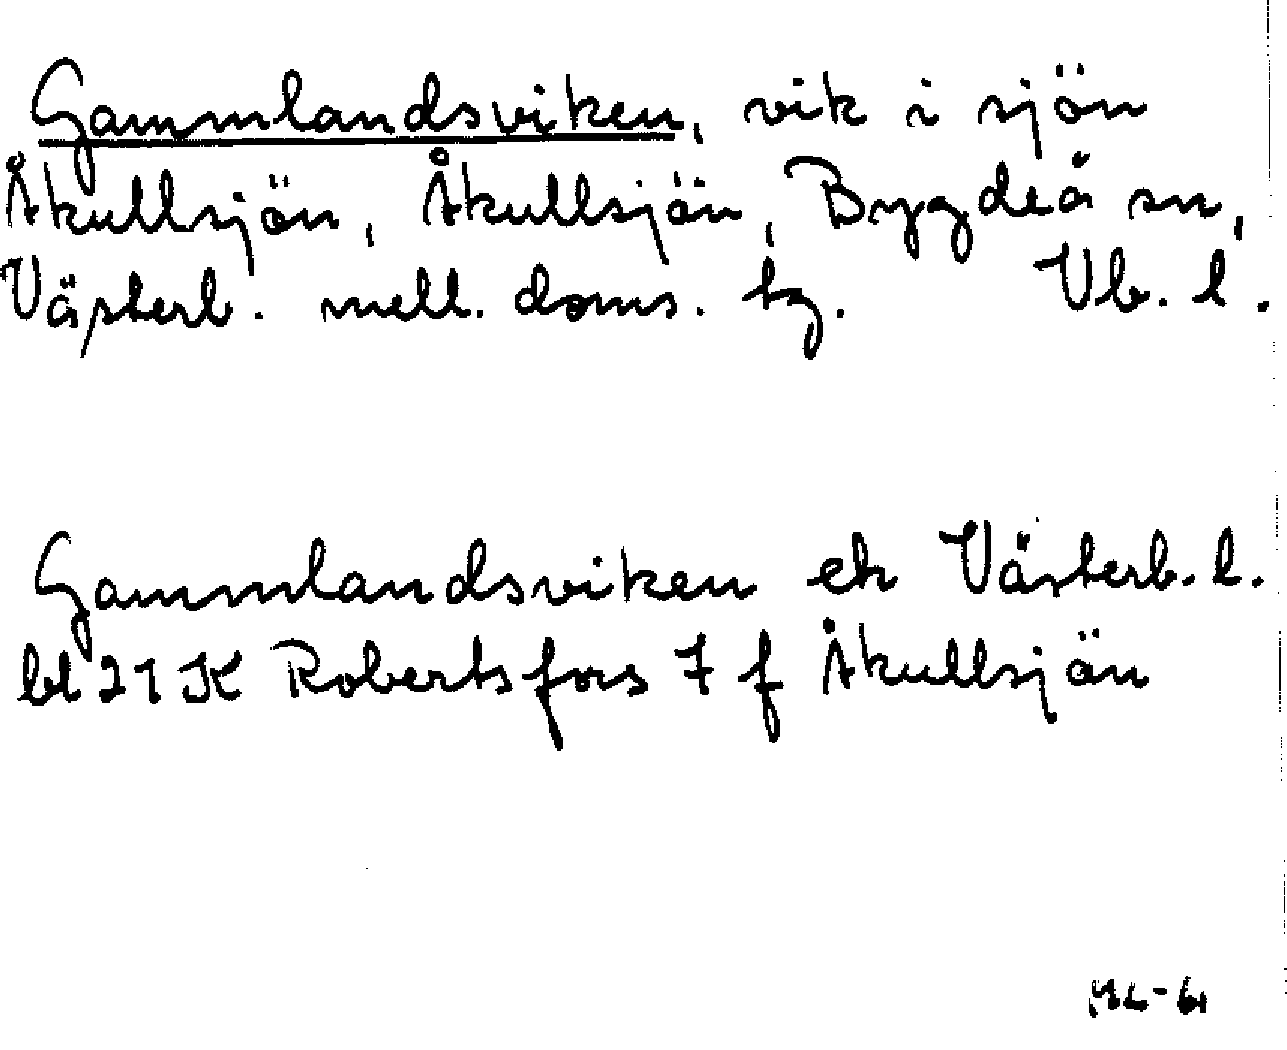 Gammlandsviken, vik i sjön
Åkullsjön, Åkullsjön, Bygdeå sn,
Västerb. mell. doms. tg. Vb. l.
Gammlandsviken ek Västerb. l.
bl 21 K Robertsfors 7 f Åkullsjön